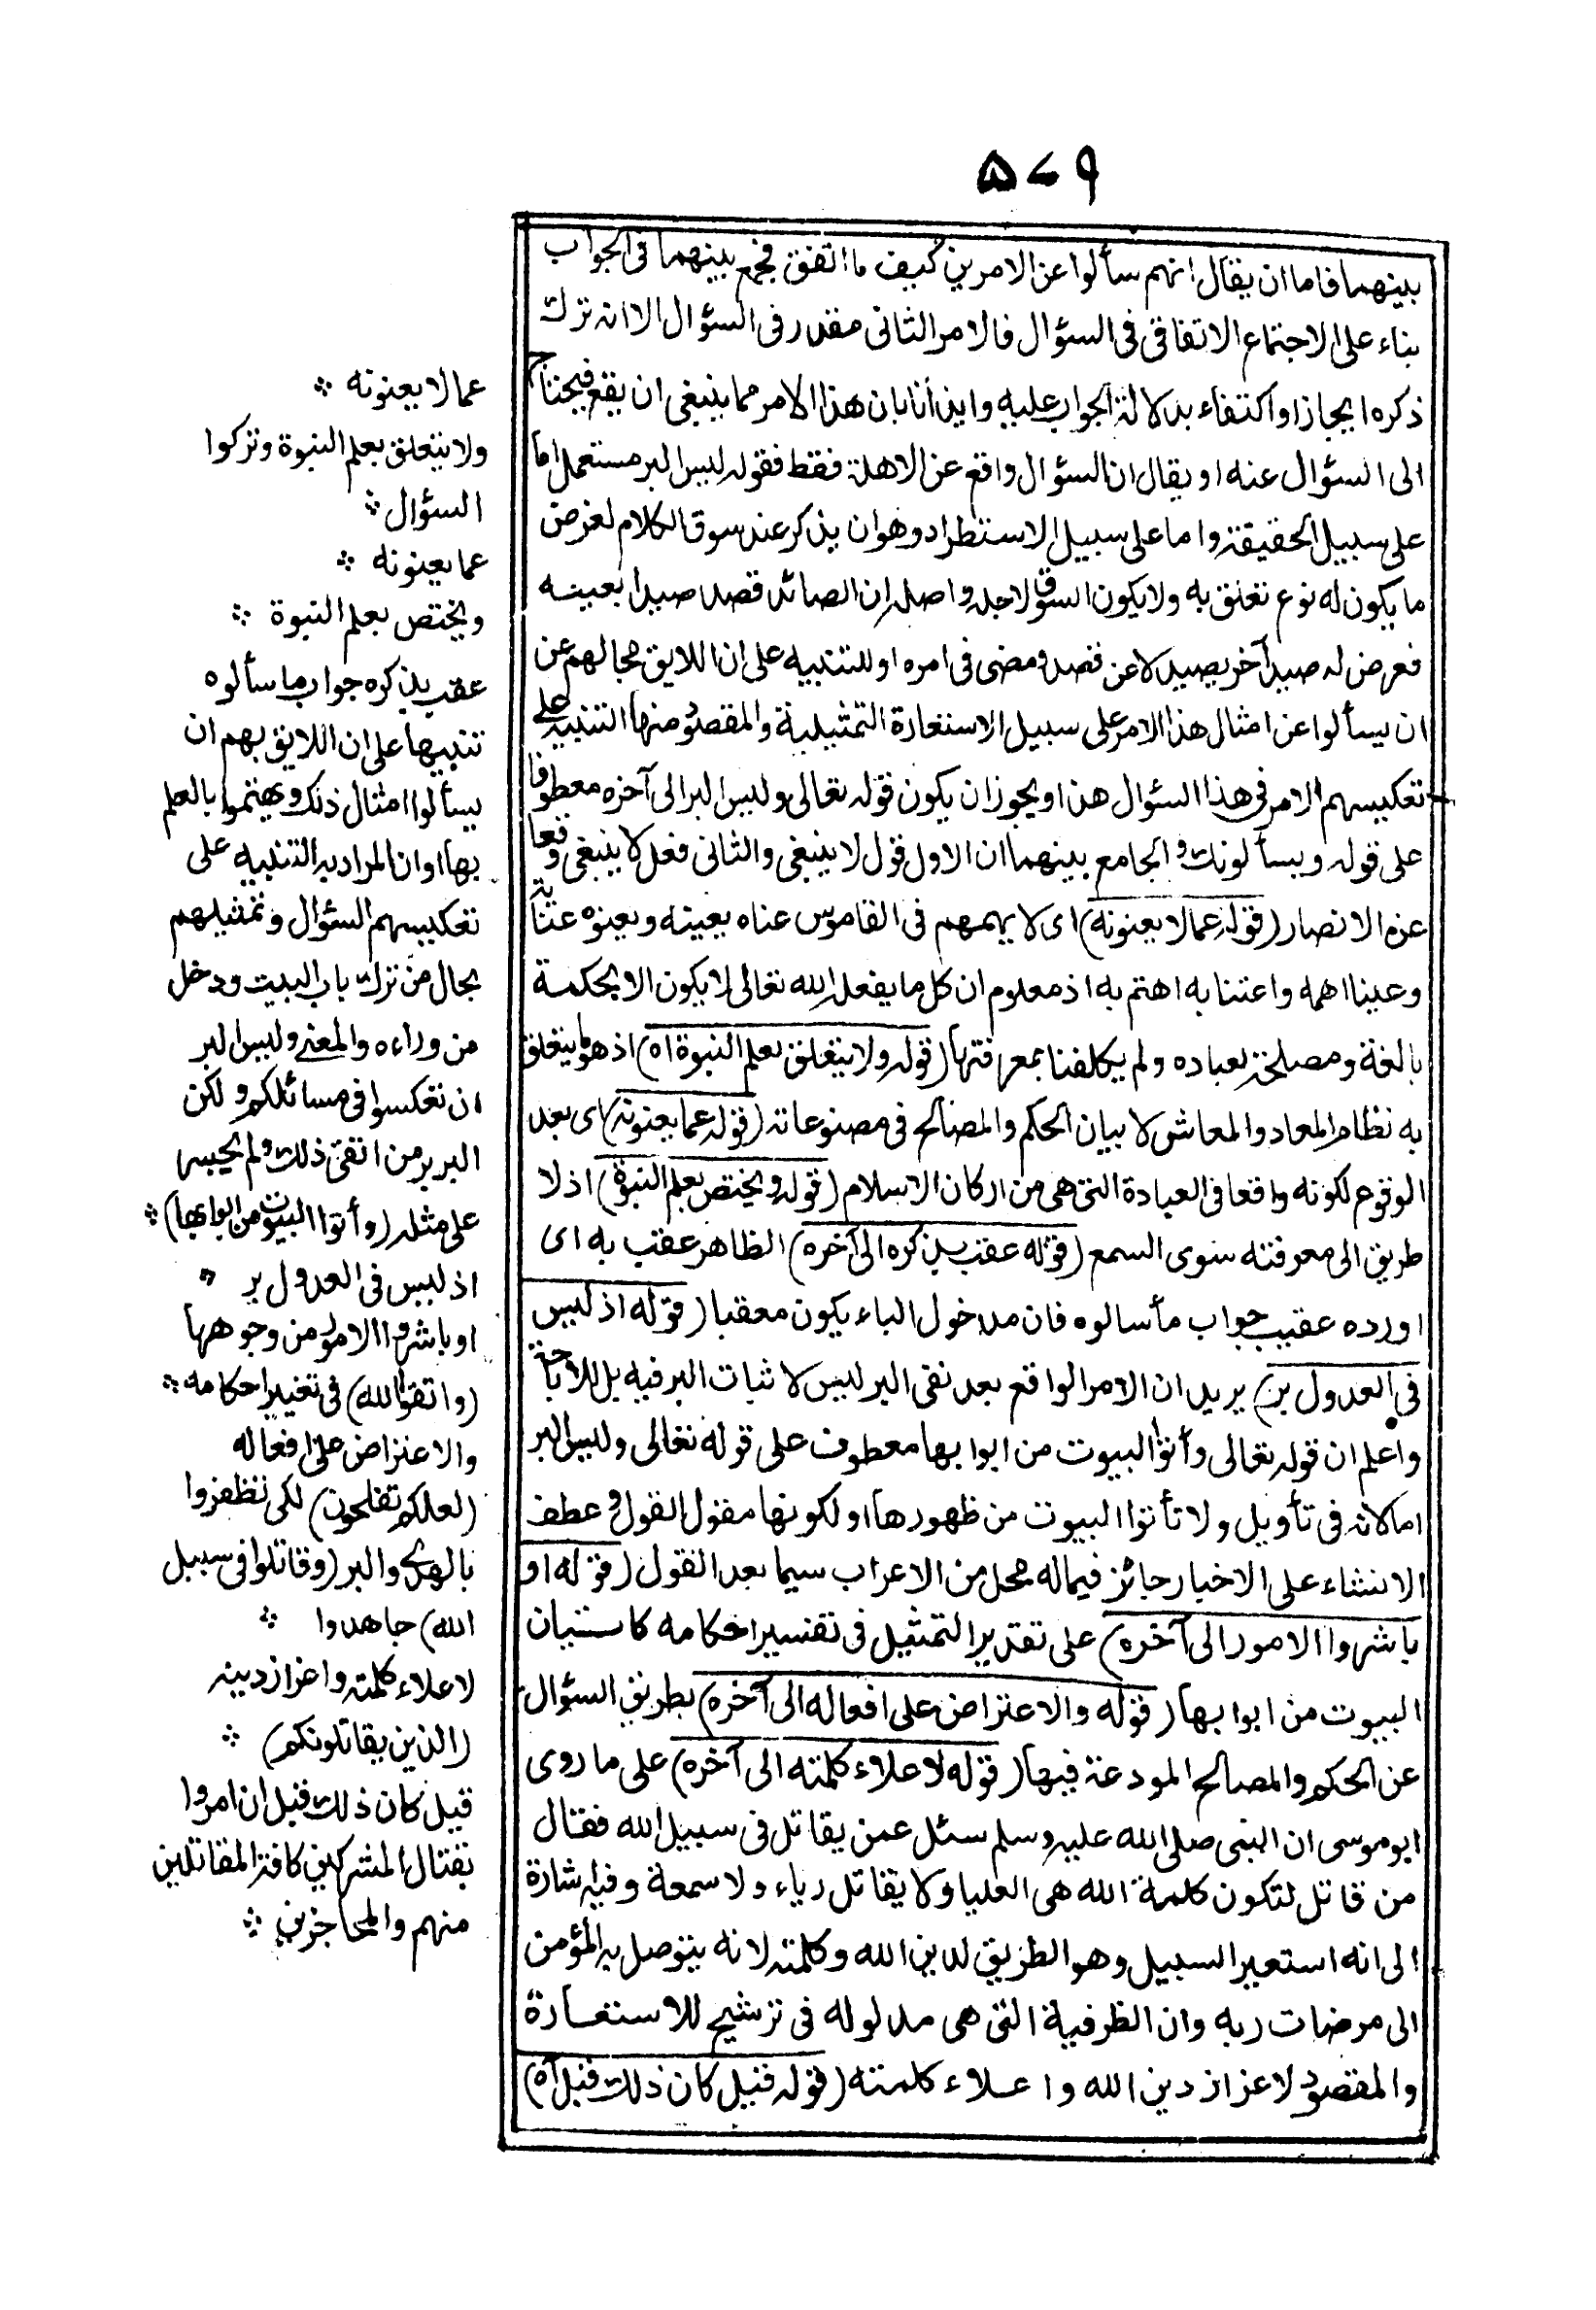 ٥٧٩
بينهما فاما ان يقال انهم سألوا عن الامرين كيف ما اتفق فجمع بينهما فى الجواب
بناء على الاجتماع الاتفاقى فى السؤال فالامر الثانى مقدر فى السؤال الا انه ترك
ذكره ايجازا واكتفاء بدلالة الجواب عليه وايذانا بان هذا الامر مما ينبغى ان يقع فيحتاج
الى السؤال عنه او يقال ان السؤال واقع عن الاهلة فقط فقوله ليس البر مستعمل اما
على سبيل الحقيقة واما على سبيل الاستطراد وهو ان يذكر عند سوق الكلام لغرض
ما يكون له نوع تعلق به ولا يكون السوق لاجله واصله ان الصائد قصد صيدا بعينه
فعرض له صيد آخر يصيد لا عن قصد ومضى فى امره او للتنبيه على ان اللايق بحالهم عن
ان يسألوا عن امثال هذا الامر على سبيل الاستعارة التمثيلية والمقصود منها التنبيه على
تعكيسهم الامر فى هذا السؤال هذا ويجوز ان يكون قوله تعالى وليس البر الى آخره معطوفا
على قوله ويسألونك والجامع بينهما ان الاول قول لا ينبغى والثانى فعل لا ينبغى وقعا
عن الانصار (قوله عما لا يعنونه) اى لا يهمهم فى القاموس عناه يعينه ويعنوه عناية
وعينا اهمه واعتنا به اهتم به اذ معلوم ان كل ما يفعل الله تعالى لا يكون الا بحكمة
بالغة ومصلحة لعباده ولم يكلفنا بمعرفتها (قوله ولا يتعلق بعلم النبوة اه) اذ هو ما يتعلق
به نظام المعاد والمعاش لا بيان الحكم والمصالح فى مصنوعاته (قوله عما يعنونه) اى بعد
الوقوع لكونه واقعا فى العبادة التى هى من اركان الاسلام (قوله ويختص بعلم النبوة) اذ لا
طريق الى معرفته سوى السمع (قوله عقب بذكره الى آخره) الظاهر عقب به اى
اورده عقيب جواب ما سالوه فان مدخول الباء يكون معقبا (قوله اذ ليس
فى العدول بر) يريد ان الامر الواقع بعد نفى البر ليس لاثبات البر فيه بل للاباحة
واعلم ان قوله تعالى وأتوا البيوت من ابوابها معطوف على قوله تعالى وليس البر
اما لانه فى تأويل ولا تأتوا البيوت من ظهورها او لكونها مقول القول وعطف
الانشاء على الاخبار جائز فيما له محل من الاعراب سيما بعد القول (قوله او
باشروا الامور الى آخره) على تقدير التمثيل فى تفسير احكامه كاستبان
البيوت من ابوابها (قوله والاعتراض على افعاله الى آخره) بطريق السؤال
عن الحكم والمصالح المودعة فيها (قوله لاعلاء كلمته الى آخره) على ما روى
ابو موسى ان النبى صلى الله عليه وسلم سئل عمن يقاتل فى سبيل الله فقال
من قاتل لتكون كلمة الله هى العليا ولا يقاتل رياء ولا سمعة وفيه اشارة
الى انه استعير السبيل وهو الطريق لدين الله وكلمته لانه يتوصل به المؤمن
الى مرضات ربه وان الظرفية التى هى مدلوله فى ترشيح للاستعارة
والمقصود لاعزاز دين الله واعلاء كلمته (قوله قيل كان ذلك قبل اه)
عما لا يعنونه
ولا يتعلق بعلم النبوة وتركوا
السؤال
عما يعنونه
ويختص بعلم النبوة
عقب بذكره جواب ما سألوه
تنبيها على ان اللايق بهم ان
يسألوا امثال ذلك ويهتموا بالعلم
بها او ان المراد به التنبيه على
تعكيسهم السؤال وتمثيلهم
بحال من ترك باب البيت ودخل
من وراءه والمعنى وليس البر
ان تعكسوا فى مسائلكم ولكن
البر بر من اتقى ذلك ولم يجسر
على مثله (وأتوا البيوت من ابوابها)
اذ ليس فى العدول بر
او باشروا الامور من وجوهها
(واتقوا الله) فى تغيير احكامه
والاعتراض على افعاله
(لعلكم تفلحون) لكى تظفروا
بالهدى والبر (وقاتلوا فى سبيل
الله) جاهدوا
لاعلاء كلمته واعزاز دينه
(الذين يقاتلونكم)
قيل كان ذلك قبل ان امروا
بقتال المشركين كافة المقاتلين
منهم والمحاجزين